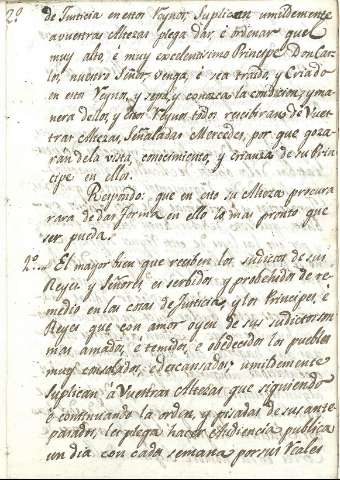 2º
de Justicia en estos Reynos, Suplican umildemente
a vuestras Altezas plega dar, é ordenar quel
muy alto, é muy excelentisimo Principe Don Car-
los, nuestro Señor, venga, é sea traido, y Criado
en estos Reynos, y sepa, y conozca la condicion, y ma
nera dellos, y estos Reynos todos recibiran de Vues
tras Altezas, Señaladas Mercedes, por que goza
rán de la vista, conocimiento, y crianza de su Prin
cipe en ellos.
Respondo: que en esto su Alteza procura
rará de dar forma en ello lo mas pronto que
ser pueda.
2º El mayor bien que reciben los subditos de sus
Reyes y Señores, es ser oidos y probehidos de re
medio en las cosas de Justicia, y los Principes, é
Reyes que con amor oyen de sus subditos son
mas amados, é temidos, é obedecidos los pueblos
muy consolados, é descansados; umildemente
suplican á Vuestras Altezas que siguiendo
é continuando la orden, y pisadas de sus ante-
pasados, les plega hacer Audiencia publica
un dia con cada semana por sus Reales